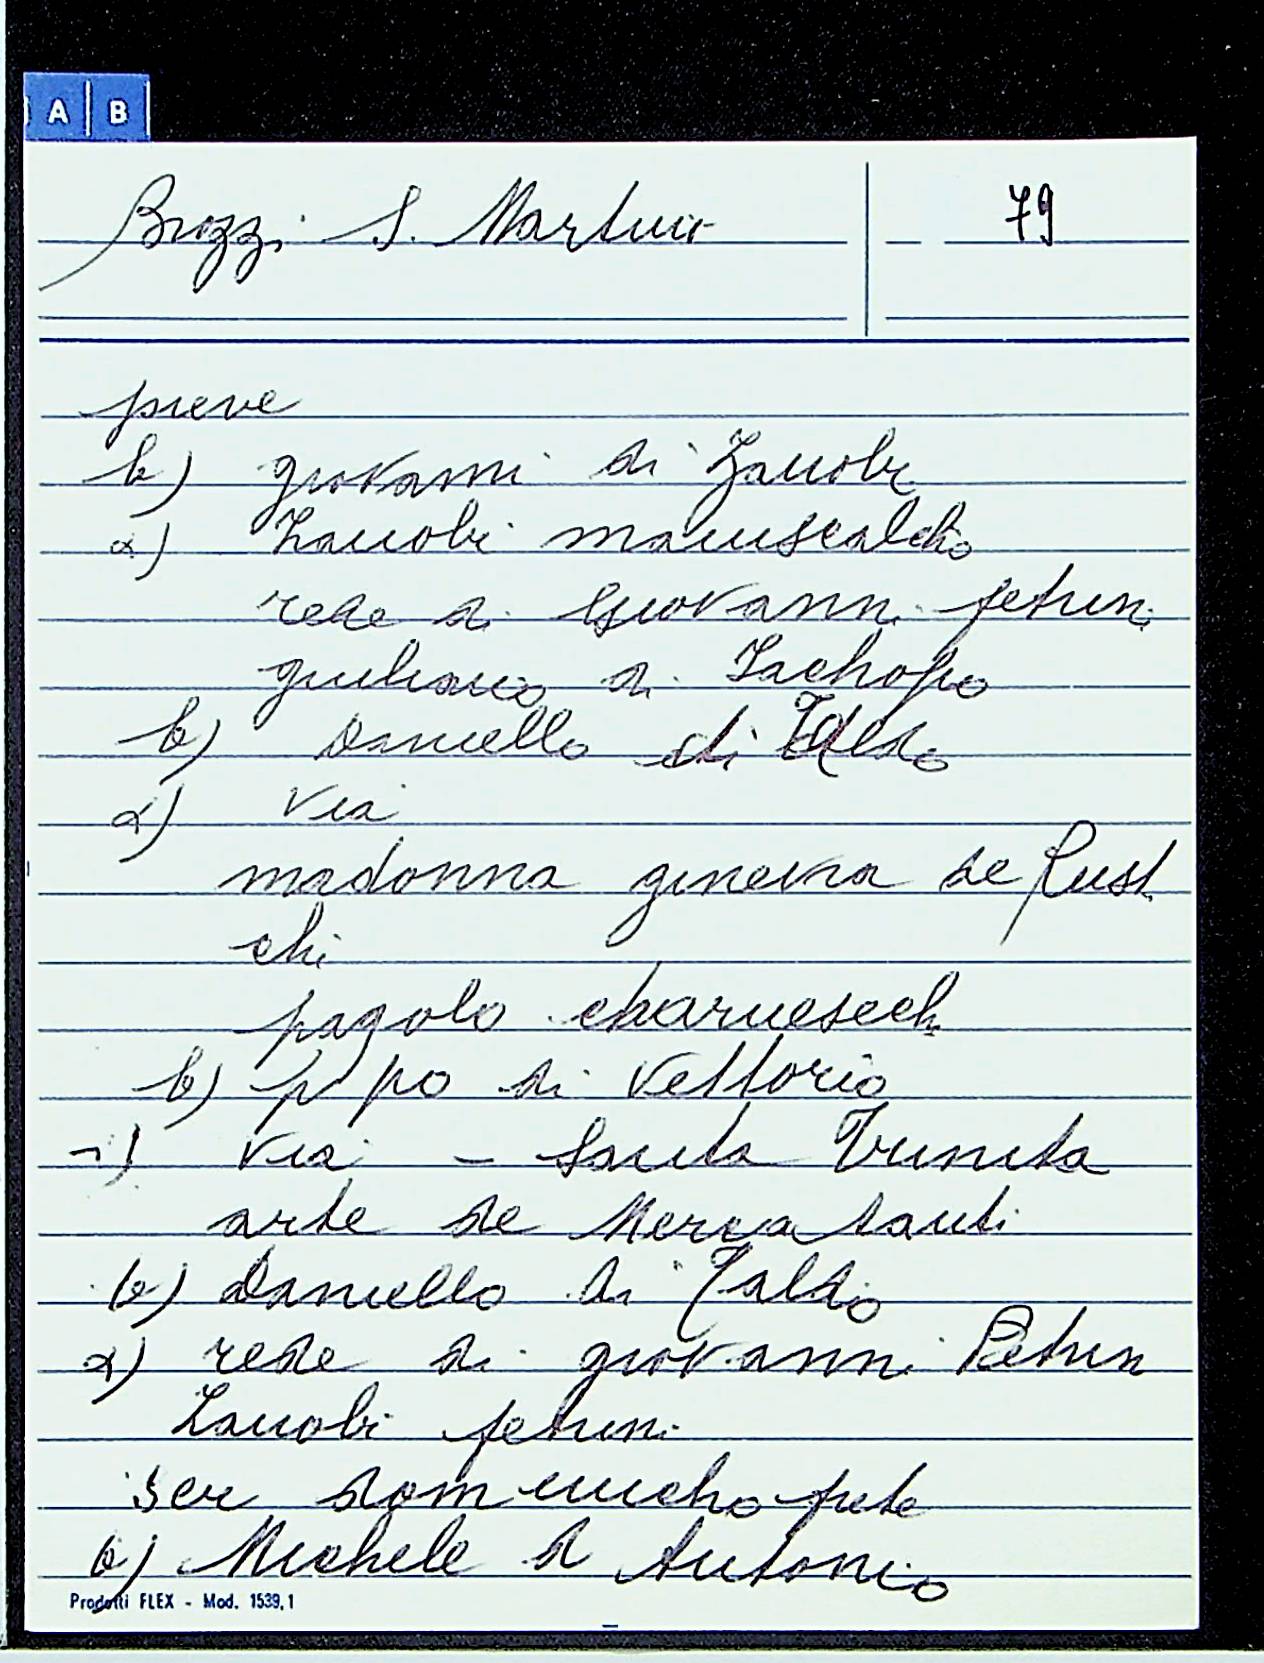 A B
Brozzi S. Martino 79
pieve
b) giovanni di Zanobi
a) Zanobi maniscalcho
rede di Giovanni petrini
giuliano di Iachopo
b) Daniello di Taldo
a) via
madonna ginevra de Rusti
chi
pagolo charnesech
b) pippo di Vettorio
a) via - Santa Trinita
arte de Mercatanti
b) Daniello di Taldo
a) rede di giovanni Petrin
Zanobi petrini
ser domenicho prete
b) Michele d Antonio
Prodotti FLEX - Mod. 1539,1